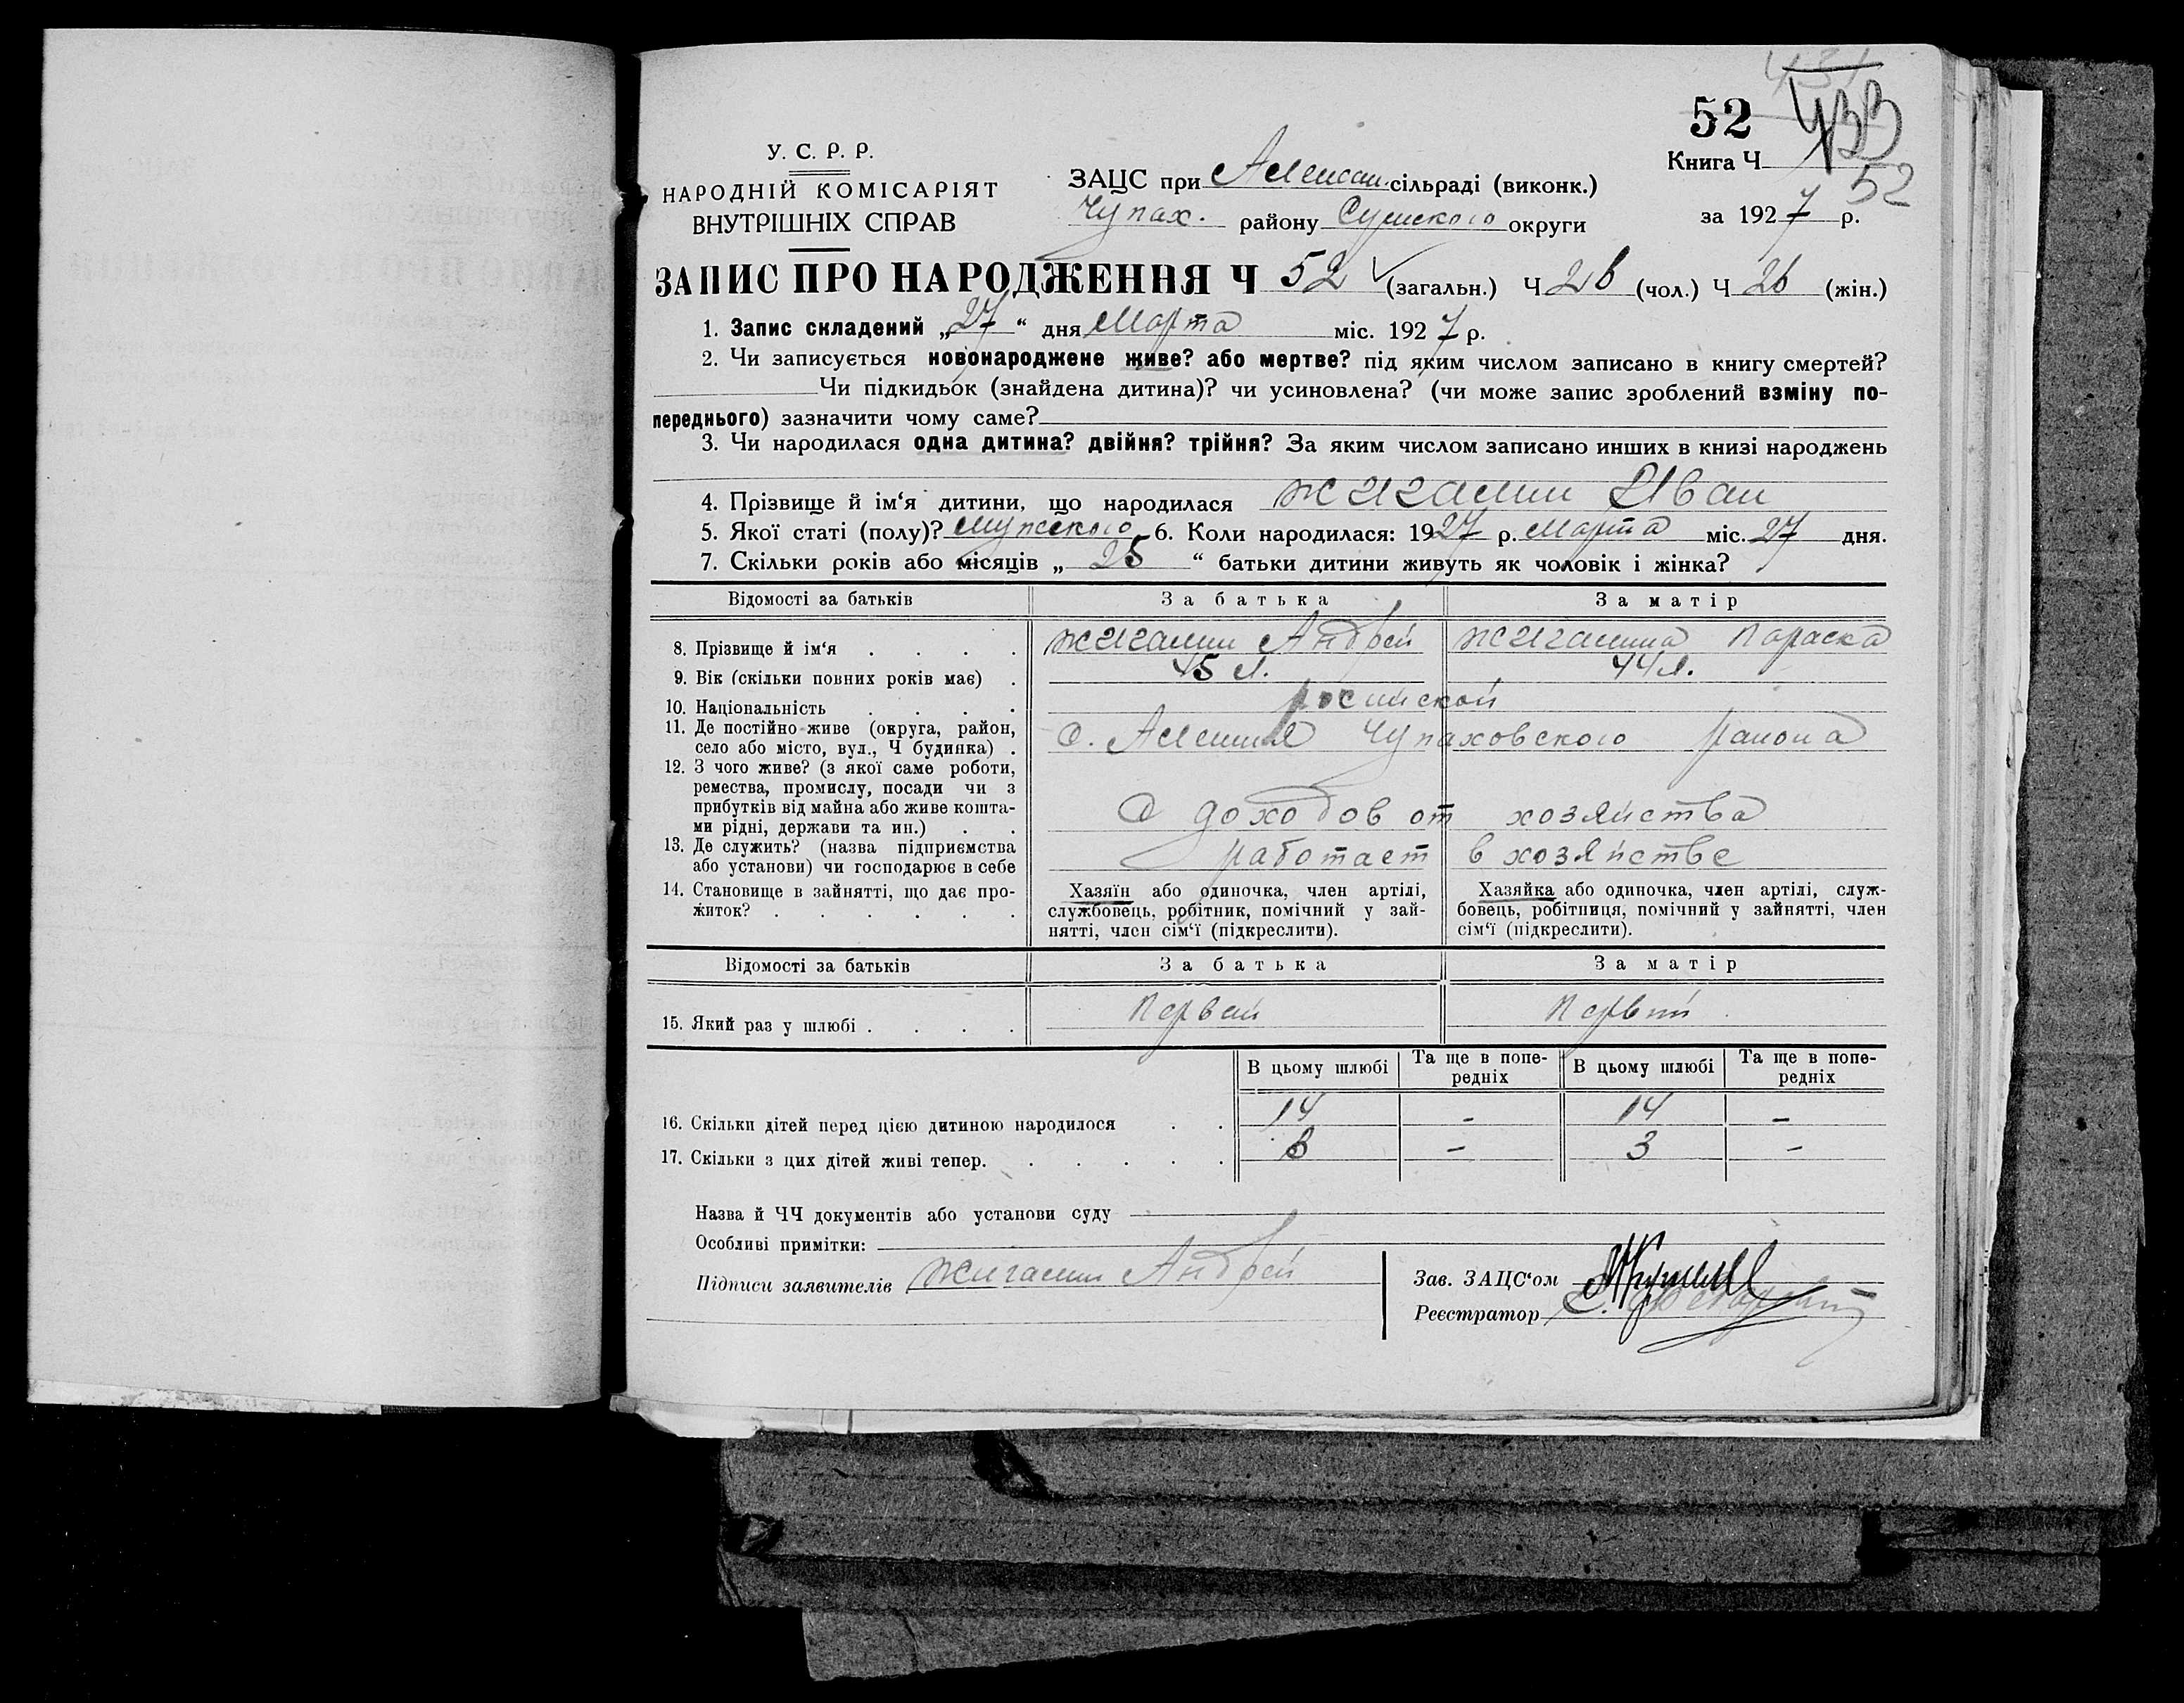 431
52 433
У. С. Р. Р.
НАРОДНІЙ КОМІСАРІЯТ
ВНУТРІШНІХ СПРАВ
ЗАЦС при сільраді (виконк.)
Чупах. району Сумского округи
Книга Ч 52
за 1927 р.
ЗАПИС ПРО НАРОДЖЕННЯ Ч 52 (загальн.) Ч 26 (чол.) Ч 26 (жін.)
1. Запис складений „27“ дня Марта міс. 1927 р.
2. Чи записується новонароджене живе? або мертве? під яким числом записано в книгу смертей?
Чи підкидьок (знайдена дитина)? чи усиновлена? (чи може запис зроблений взміну по-
переднього) зазначити чому саме?
3. Чи народилася одна дитина? двійня? трійня? За яким числом записано инших в книзі народжень
4. Прізвище й ім‘я дитини, що народилася Жигалин Иван
5. Якої статі (полу)? Мужского 6. Коли народилася: 1927 р. Марта міс. 27 дня.
7. Скільки років або місяців „ 25 “ батьки дитини живуть як чоловік і жінка?
Відомості за батьків За батька За матір
8. Прізвище й ім‘я . . . . Жигалин Андрей Жигалина Параска
9. Вік (скільки повних років має) . 45 л. 44 л.
10. Національність . . . . росийской
11. Де постійно живе (округа, район,
село або місто, вул., Ч будинка) . с. Чупаховского района
12. З чого живе? (з якої саме роботи,
ремества, промислу, посади чи з
прибутків від майна або живе кошта-
ми рідні, держави та ин.) . . С доходов от хозяйства
13. Де служить? (назва підприємства
або установи) чи господарює в себе работает в хозяйстве
14. Становище в зайнятті, що дає про-
житок? . . . . . .
Хазяїн або одиночка, член артілі,
службовець, робітник, помічний у зай-
нятті, член сім‘ї (підкреслити).
Хазяйка або одиночка, член артілі, служ-
бовець, робітниця, помічний у зайнятті, член
сім‘ї (підкреслити).
Відомості за батьків За батька За матір
15. Який раз у шлюбі . . . . Первый Первый
В цьому шлюбі Та ще в попе-
редніх В цьому шлюбі Та ще в попе-
редніх
16. Скільки дітей перед цією дитиною народилося . . 14 - 14 -
17. Скільки з цих дітей живі тепер. . . . . . 3 - 3 -
Назва й ЧЧ документів або установи суду
Особливі примітки:
Підписи заявителів Жигалин Андрей
Зав. ЗАЦС‘ом
Реєстратор